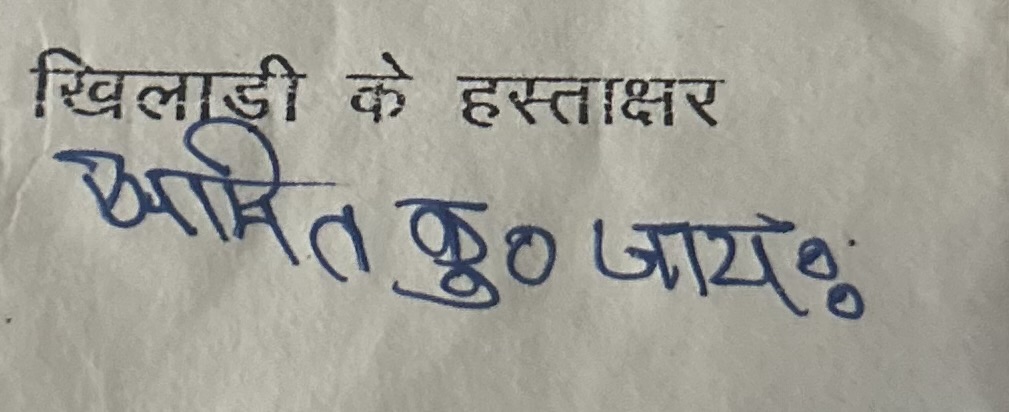 खिलाडी के हस्ताक्षर
अमित कु०